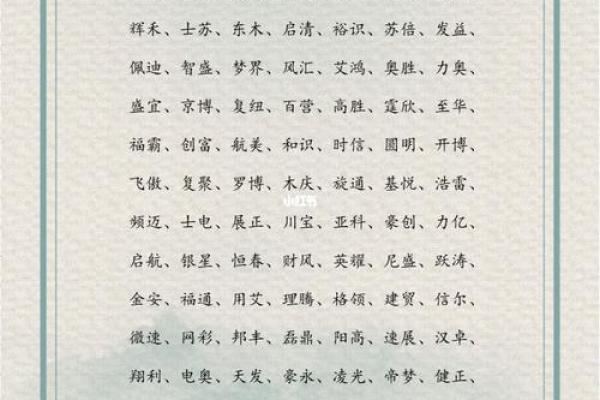 辉禾、士苏、东木、启清、裕识、苏倍、发益、
佩迪、智盛、梦界、风汇、艾鸿、奥胜、力奥、
盛宜、京博、复纽、百营、高胜、霆欣、至华、
福霸、创富、航美、和识、时信、圆明、开博、
飞傲、复聚、罗博、木庆、旋通、基悦、浩雷、
小红书
频迈、士电、展正、川宝、亚科、豪创、力亿、
启航、银星、恒春、财风、英耀、尼盛、跃涛、
金安、福通、用艾、理腾、格领、建贸、信尔、
微速、网彩、邦丰、磊鼎、阳高、速展、汉卓、
翔利、电奥、天发、豪永、凌光、帝梦、健正、